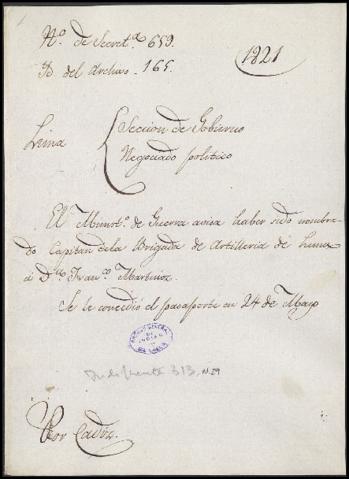 N.º de Secret.ª 659.
Yd. del Archivo. 165.
1821
Lima
Seccion de Gobierno
Negociado politico
El Minist.º de Guerra avisa haber sido nombra-
do Capitan dela Brigada de Artilleria de Lima
á D.n Fran.co Martinez.
Se le concedió el pasaporte en 24 de Mayo
ARCHIVO GENERAL
DE
INDIAS
SEVILLA
Indiferente 313, N.59
Por Cadiz.